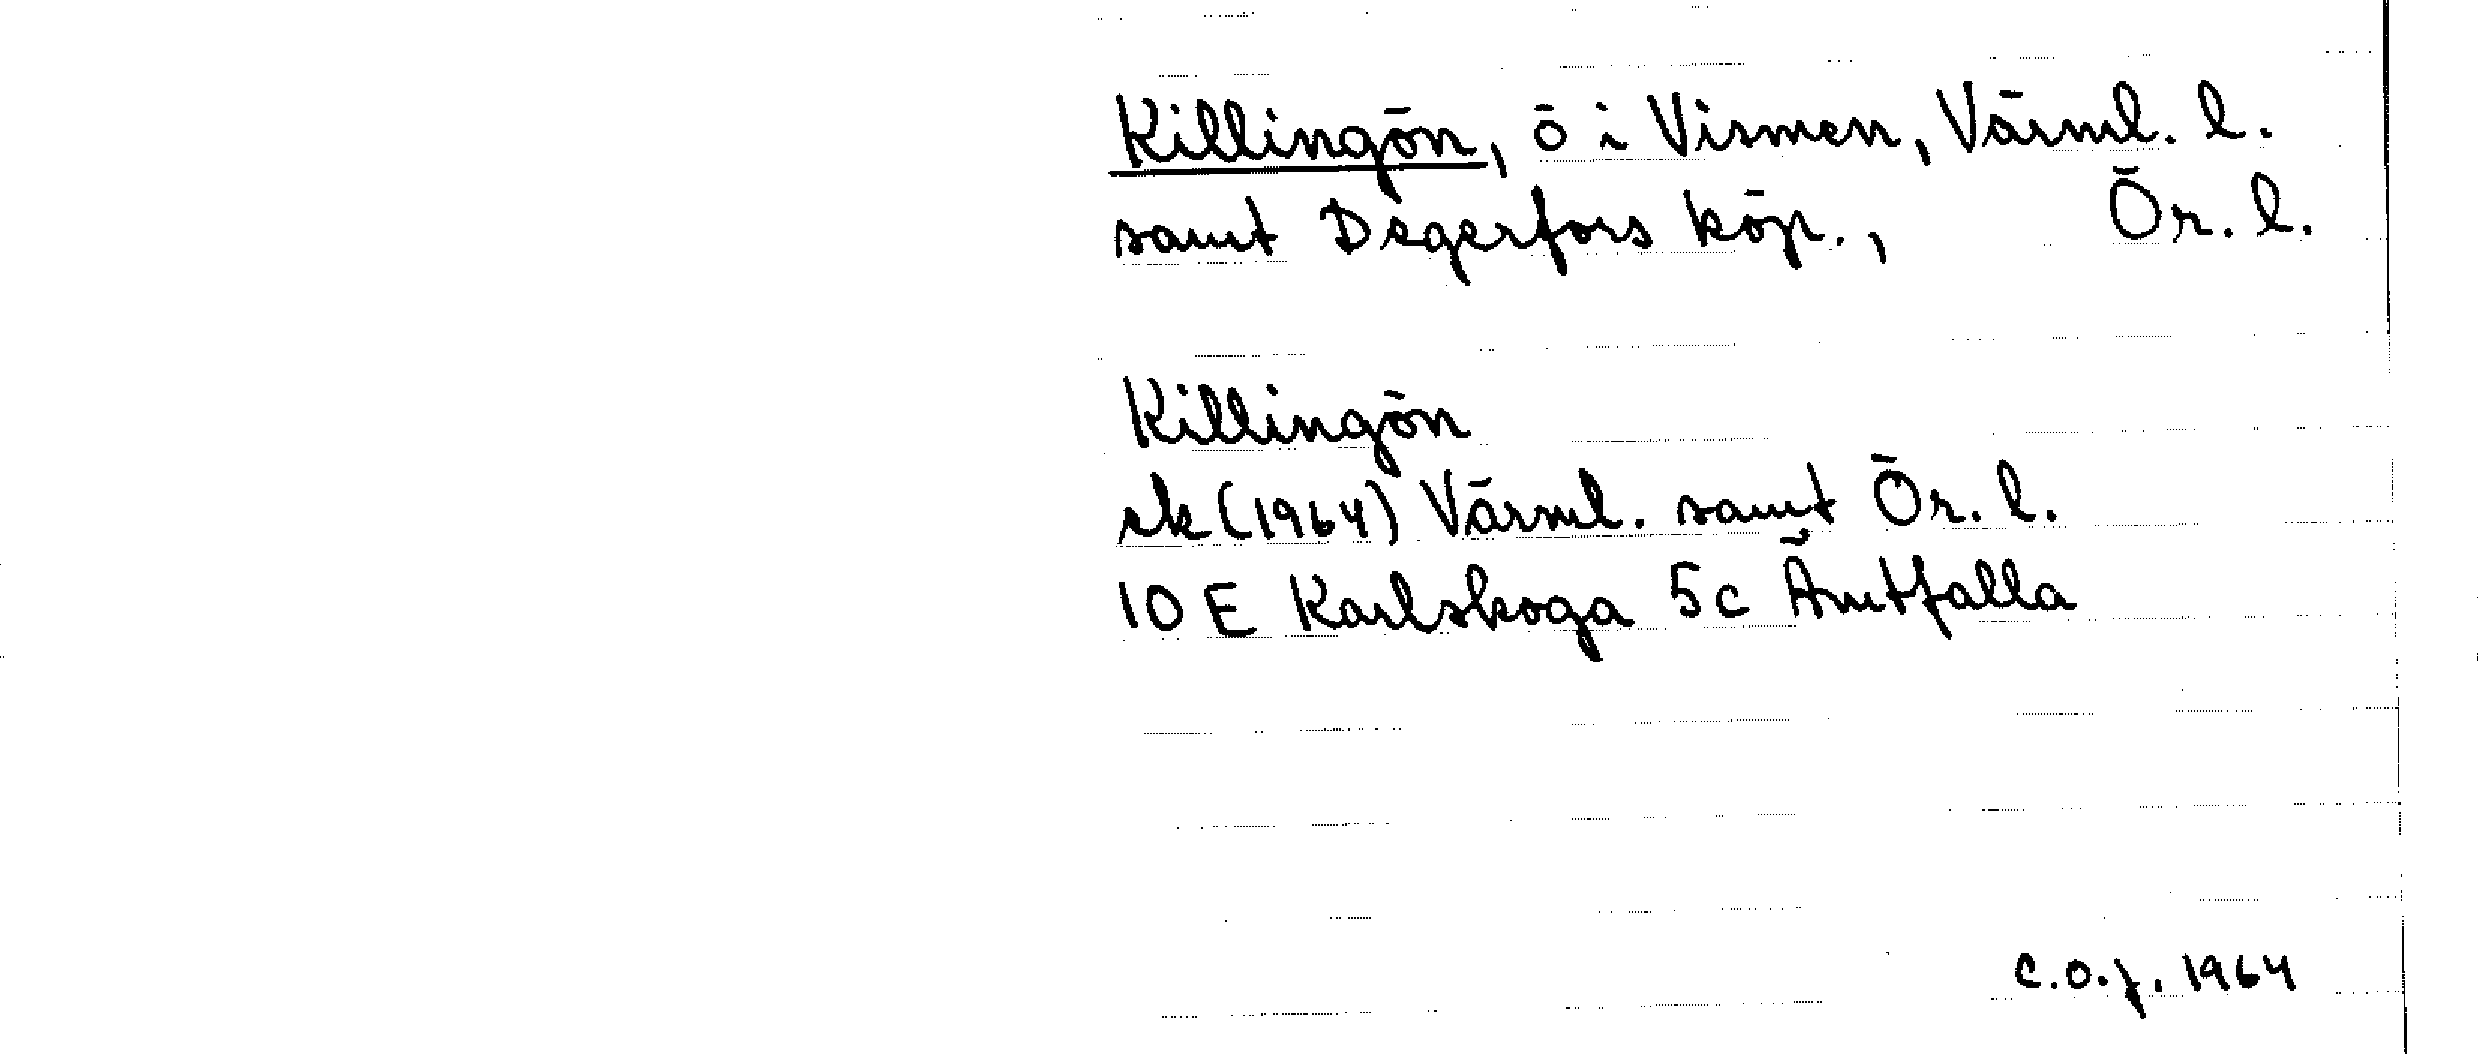 Killingön, ö i Vismen, Värml. l.
samt Degerfors köp., Ör. l.
Killingön
ek (1964) Värml. samt Ör. l.
10 E Karlskoga 5c Åmtfalla
C.O.J. 1964